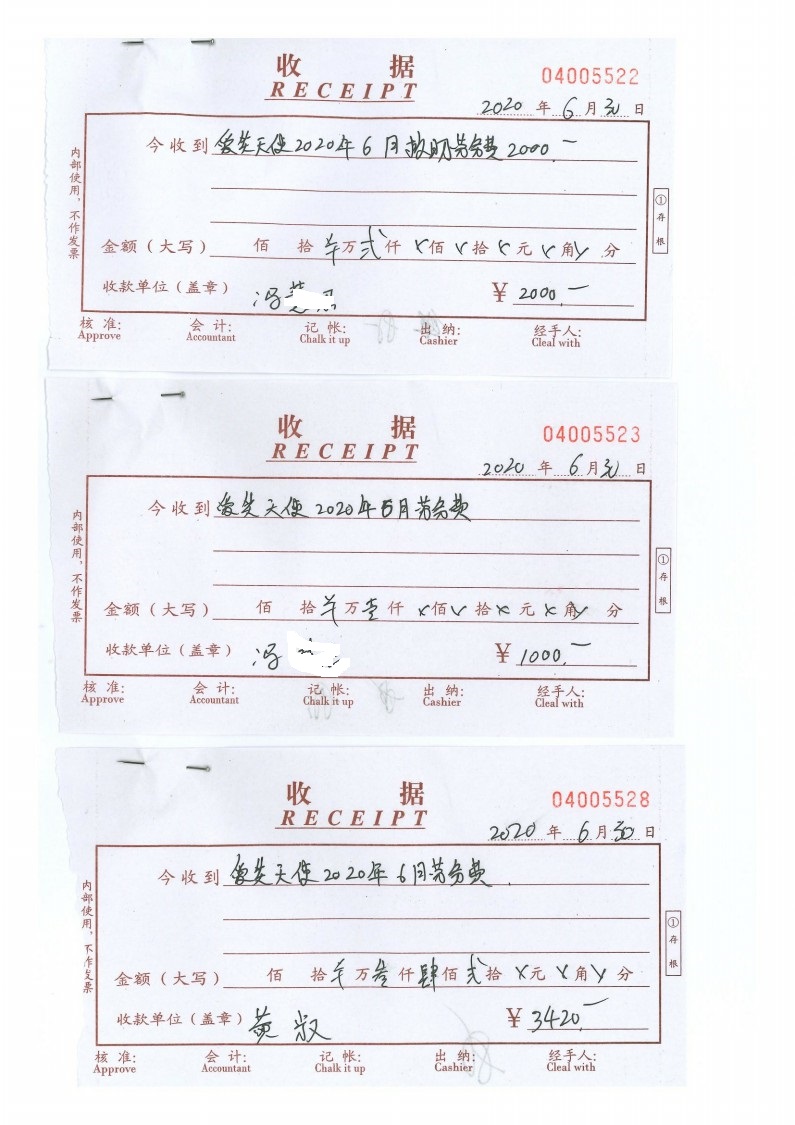 收 据
RECEIPT
04005522
2020 年 6 月 30 日
今收到 爱笑天使2020年6月 劳务费2000.一
内部使用，不作发票
①存根
金额（大写） 佰 拾 万 贰 仟 佰 拾 元 角 分
收款单位（盖章） 冯
¥ 2000.一
核准: 会计: 记帐: 出纳: 经手人:
Approve Accountant Chalk it up Cashier Cleal with
收 据
RECEIPT
04005523
2020 年 6 月 30 日
今收到 爱笑天使2020年5月劳务费
内部使用，不作发票
①存根
金额（大写） 佰 拾 万 壹 仟 x 佰 拾 x 元 x 角 分
收款单位（盖章） 冯
¥ 1000.一
核准: 会计: 记帐: 出纳: 经手人:
Approve Accountant Chalk it up Cashier Cleal with
收 据
RECEIPT
04005528
2020 年 6 月 30 日
今收到 爱笑天使2020年6月劳务费
内部使用，不作发票
①存根
金额（大写） 佰 拾 万 叁 仟 肆 佰 贰 拾 x 元 角 分
收款单位（盖章） 黄
¥ 3420.一
核准: 会计: 记帐: 出纳: 经手人:
Approve Accountant Chalk it up Cashier Cleal with